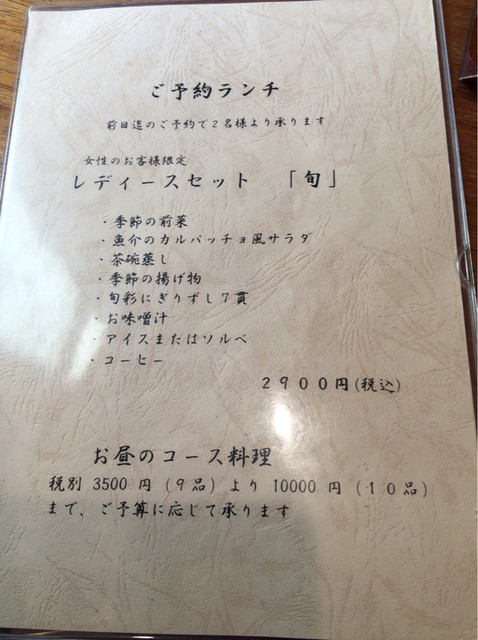 ご予約ランチ
前日迄のご予約で2名様より承ります
女性のお客様限定
レディースセット 「旬」
・季節の前菜
・魚介のカルパッチョ風サラダ
・茶碗蒸し
・季節の揚げ物
・旬彩にぎりずし7貫
・お味噌汁
・アイスまたはソルベ
・コーヒー
2900円(税込)
お昼のコース料理
税別 3500 円 (9品) より 10000 円 (10品)
まで、ご予算に応じて承ります